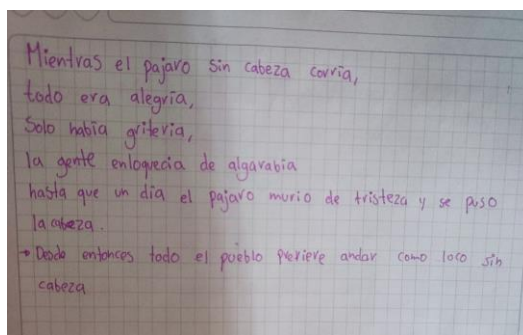 Mientras el pajaro sin cabeza corria,
todo era alegría,
Solo había griteria,
la gente enloquecia de algarabia
hasta que un día el pajaro murio de tristeza y se puso
la cabeza.
→ Desde entonces todo el pueblo preriere andar como loco sin
cabeza